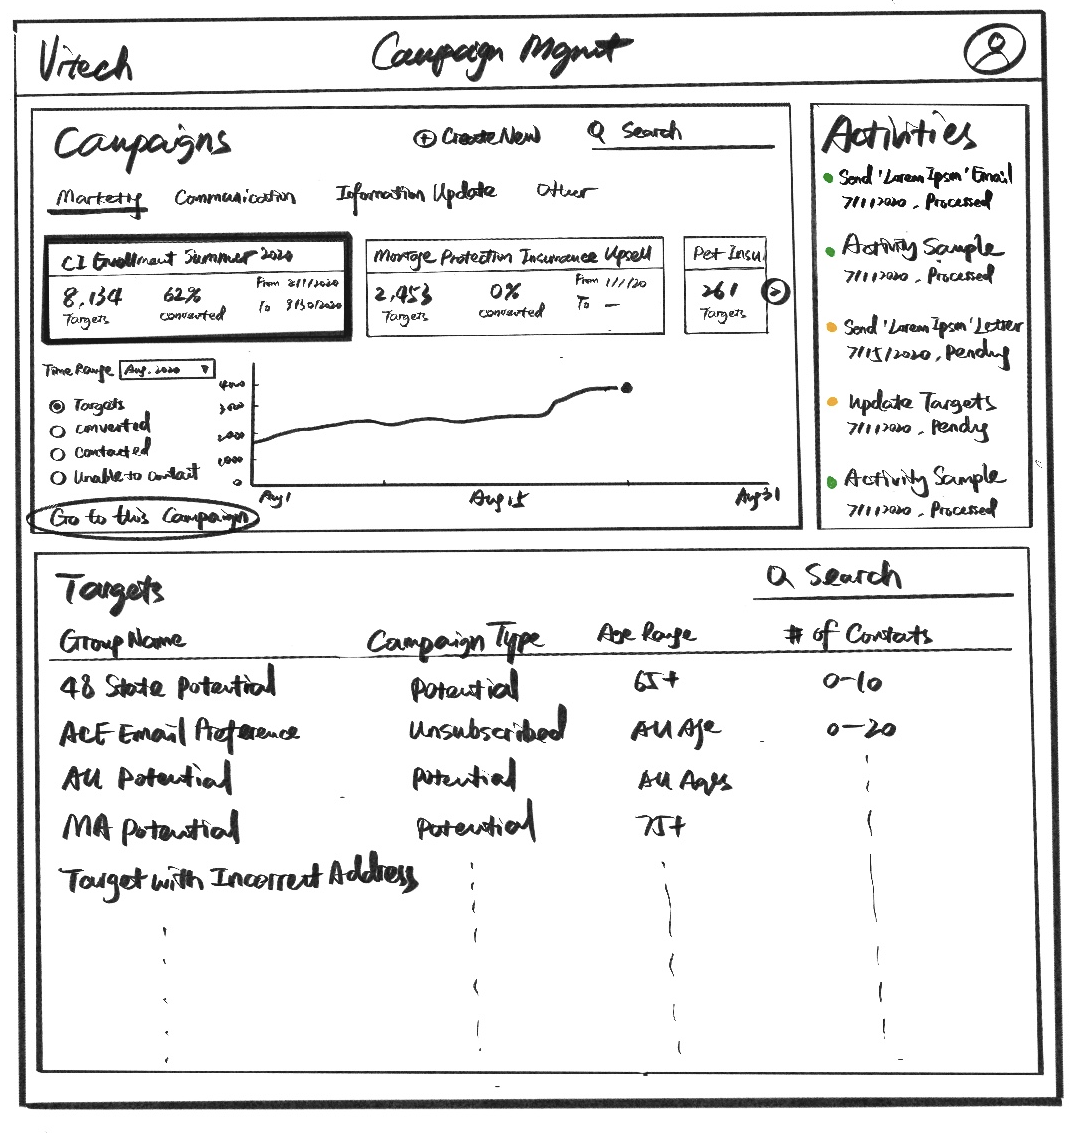 Vitech
Campaign Mgmt
Campaigns
Create New
Search
Marketing
Communication
Information Update
Other
CI Enrollment Summer 2020
8,134
Targets
62%
converted
From 8/1/2020
To 9/30/2020
Mortge Protection Insurance Upsell
2,453
Targets
0%
converted
From 1/1/20
To —
Pet Insu
261
Targets
>
Time Range
Aug. 2020
Targets
Converted
Contacted
Unable to Contact
4000
3000
2000
1000
0
Aug 1
Aug 15
Aug 31
Go to this Campaign
Activities
Send 'Lorem Ipsm' Email
7/1/2020, Processed
Activity Sample
7/1/2020, Processed
Send 'Lorem Ipsm' Letter
7/15/2020, Pending
Update Targets
7/1/2020, Pending
Activity Sample
7/1/2020, Processed
Targets
Search
Group Name Campaign Type Age Range # of Contats
48 State Potential Potential 65+ 0-10
ACE Email Preference Unsubscribed All Age 0-20
All Potential Potential All Ages
MA Potential Potential 75+
Target with Incorrect Address